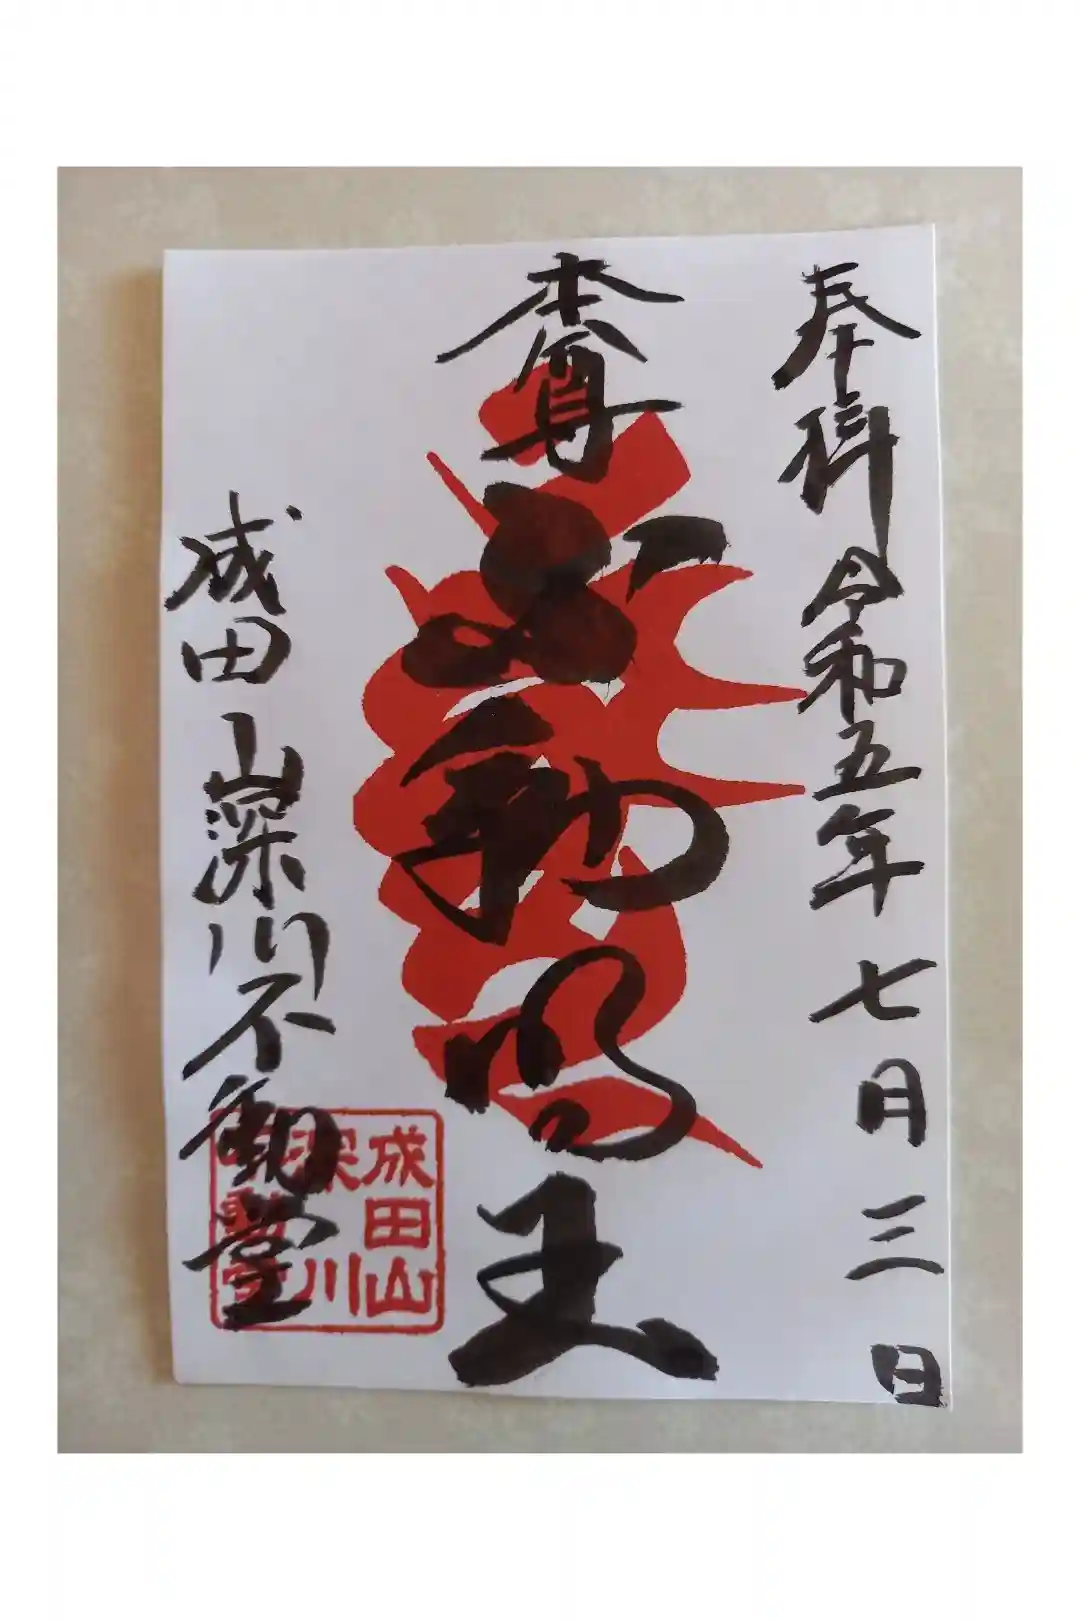 奉拝 令和五年七月三日
本尊
不動明王
成田山深川不動堂
成田山
深川
不動堂